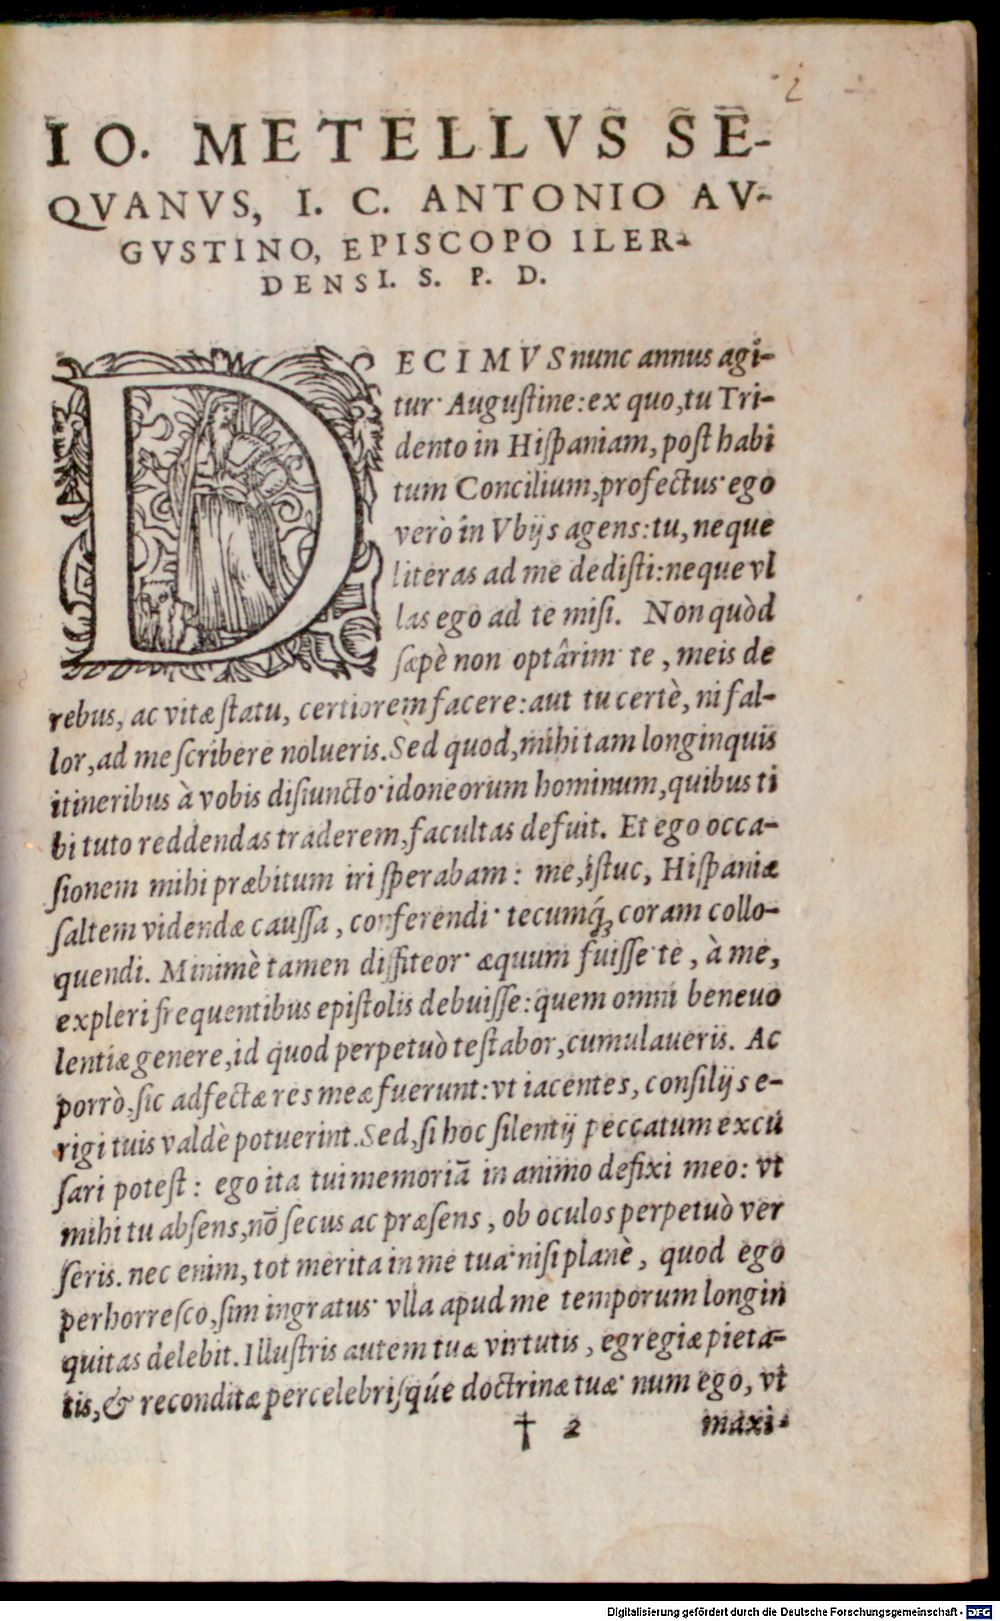 2
IO. METELLVS SE-
QVANVS, I. C. ANTONIO AV-
GVSTINO, EPISCOPO ILER-
DENSI. S. P. D.
DECIMVS nunc annus agi-
tur Augustine: ex quo, tu Tri-
dento in Hispaniam, post habi
tum Concilium, profectus ego
verò in Vbijs agens: tu, neque
literas ad me dedisti: neque vl
las ego ad te misi. Non quòd
sæpè non optârim te, meis de
rebus, ac vitæ statu, certiorem facere: aut tu certè, ni fal-
lor, ad me scribere nolueris. Sed quod, mihi tam longinquis
itineribus à vobis disiuncto idoneorum hominum, quibus ti
bi tuto reddendas traderem, facultas defuit. Et ego occa-
sionem mihi præbitum iri sperabam: me, istuc, Hispaniæ
saltem videndæ caussa, conferendi tecumq́; coram collo-
quendi. Minimè tamen diffiteor æquum fuisse te, à me,
expleri frequentibus epistolis debuisse: quem omni beneuo
lentiæ genere, id quod perpetuò testabor, cumulaueris. Ac
porrò, sic adfectæ res meæ fuerunt: vt iacentes, consilijs e-
rigi tuis valdè potuerint. Sed, si hoc silentij peccatum excu
sari potest: ego ita tui memoriā in animo defixi meo: vt
mihi tu absens, nō secus ac præsens, ob oculos perpetuò ver
seris. nec enim, tot merita in me tua nisi planè, quod ego
perhorresco, sim ingratus vlla apud me temporum longin
quitas delebit. Illustris autem tuæ virtutis, egregiæ pieta-
tis, & reconditæ percelebrisqúe doctrinæ tuæ num ego, vt
† 2 maxi-
Digitalisierung gefördert durch die Deutsche Forschungsgemeinschaft - DFG